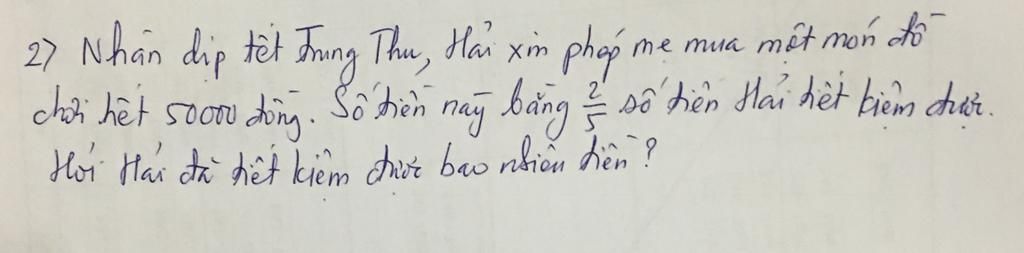 2) Nhân dịp tết Trung Thu, Hải xin phép mẹ mua một món đồ
chơi hết 50000 đồng. Số tiền này bằng 2/5 số tiền Hải tiết kiệm được.
Hỏi Hải đã tiết kiệm được bao nhiêu tiền?